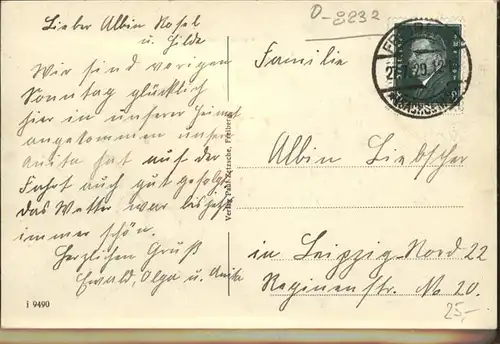 Lieber Albin Rosel
u. Hilde
Wir sind vorigen
Sonntag glücklich
hier in unserer Heimat
angekommen unsere
Anita hat auf der
Fahrt auch gut gefolgt
das Wetter war bis jetzt
immer schön.
Herzlichen Gruß
Ewald, Olga u. Anita
i 9490
Verlag Paul Zetzsche, Freiberg
D-9232
Familie
Albin Liebscher
in Leipzig-Nord 22
Reginenstr. No 20.
25,-